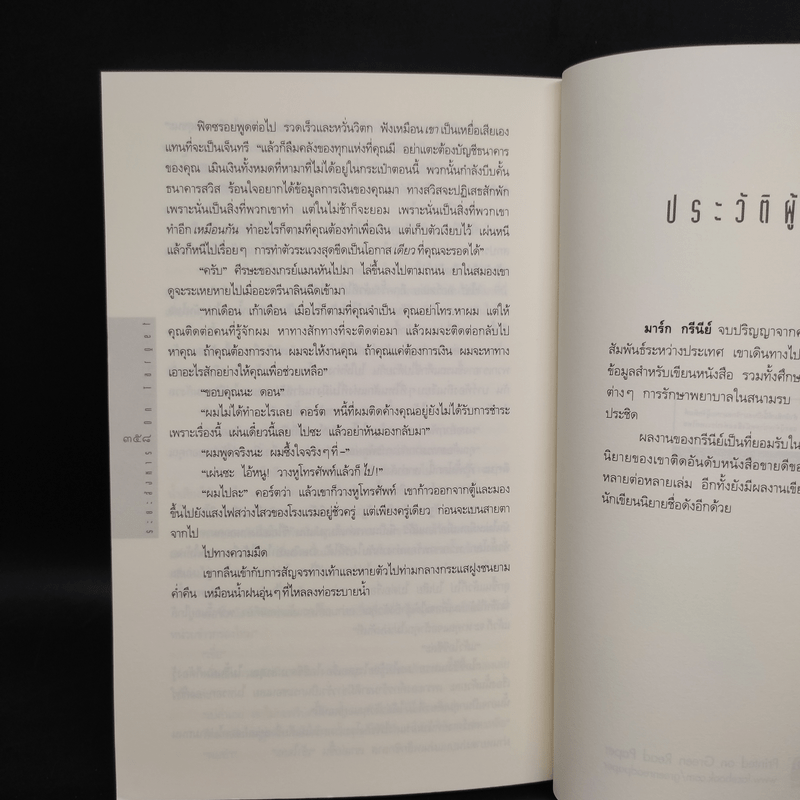 ฟิตซรอยพูดต่อไป รวดเร็วและหวั่นวิตก ฟังเหมือนเขาเป็นเหยื่อเสียเอง
แทนที่จะเป็นเจ็นทรี “แล้วก็ลืมคลังของทุกแห่งที่คุณมี อย่าแตะต้องบัญชีธนาคาร
ของคุณ เมินเงินทั้งหมดที่หามาที่ไม่ได้อยู่ในกระเป๋าตอนนี้ พวกนั้นกำลังบีบคั้น
ธนาคารสวิส ร้อนใจอยากได้ข้อมูลการเงินของคุณมา ทางสวิสจะปฏิเสธสักพัก
เพราะนั่นเป็นสิ่งที่พวกเขาทำ แต่ในไม่ช้าก็จะยอม เพราะนั่นเป็นสิ่งที่พวกเขา
ทำอีกเหมือนกัน ทำอะไรก็ตามที่คุณต้องทำเพื่อเงิน แต่เก็บตัวเงียบไว้ เผ่นหนี
แล้วก็หนีไปเรื่อยๆ การทำตัวระแวงสุดขีดเป็นโอกาสเดียวที่คุณจะรอดได้”
“ครับ” ศีรษะของเกรย์แมนหันไปมา ไล่ขึ้นลงไปตามถนน ยาในสมองเขา
ดูจะระเหยหายไปเมื่ออะดรีนาลินฉีดเข้ามา
“หกเดือน เก้าเดือน เมื่อไรก็ตามที่คุณจำเป็น คุณอย่าโทร.หาผม แต่ให้
คุณติดต่อคนที่รู้จักผม หาทางสักทางที่จะติดต่อมา แล้วผมจะติดต่อกลับไป
หาคุณ ถ้าคุณต้องการงาน ผมจะให้งานคุณ ถ้าคุณแค่ต้องการเงิน ผมจะหาทาง
เอาอะไรสักอย่างให้คุณเพื่อช่วยเหลือ”
“ขอบคุณนะ ดอน”
“ผมไม่ได้ทำอะไรเลย คอร์ต หนี้ที่ผมติดค้างคุณอยู่ยังไม่ได้รับการชำระ
เพราะเรื่องนี้ เผ่นเดี๋ยวนี้เลย ไปซะ แล้วอย่าหันมองกลับมา”
“ผมพูดจริงนะ ผมซึ้งใจจริงๆ ที่-”
“เผ่นซะ ไอ้หนู! วางหูโทรศัพท์แล้วก็ไป!”
“ผมไปละ” คอร์ตว่า แล้วเขาก็วางหูโทรศัพท์ เขาก้าวออกจากตู้และมอง
ขึ้นไปยังแสงไฟสว่างไสวของโรงแรมอยู่ชั่วครู่ แต่เพียงครู่เดียว ก่อนจะเบนสายตา
จากไป
ไปทางความมืด
เขากลืนเข้ากับการสัญจรทางเท้าและหายตัวไปท่ามกลางกระแสฝูงชนยาม
ค่ำคืน เหมือนน้ำฝนอุ่นๆ ที่ไหลลงท่อระบายน้ำ
๓๕๘
ประวัติผู้
มาร์ก กรีนีย์ จบปริญญาจาก
สัมพันธ์ระหว่างประเทศ เขาเดินทางไป
ข้อมูลสำหรับเขียนหนังสือ รวมทั้งศึกษ
ต่างๆ การรักษาพยาบาลในสนามรบ
ประชิด
ผลงานของกรีนีย์เป็นที่ยอมรับใน
นิยายของเขาติดอันดับหนังสือขายดีขอ
หลายต่อหลายเล่ม อีกทั้งยังมีผลงานเขีย
นักเขียนนิยายชื่อดังอีกด้วย